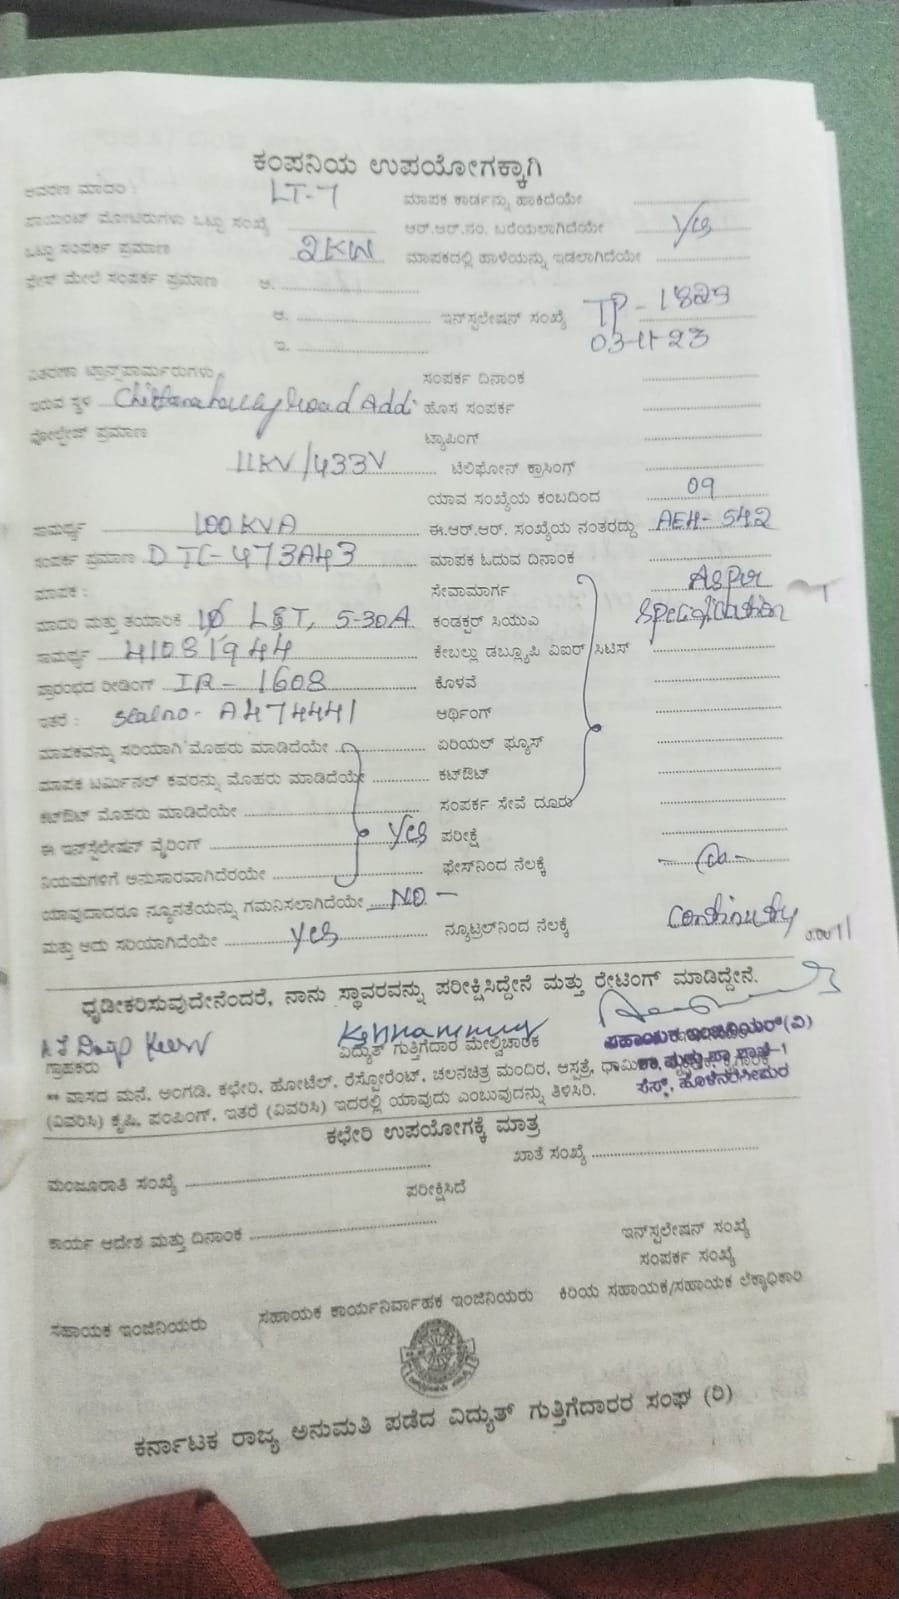 ಕಂಪನಿಯ ಉಪಯೋಗಕ್ಕಾಗಿ
ಆವರಣ ಮಾದರಿ : LT-7 ಮಾಪಕ ಕಾರ್ಡನ್ನು ಹಾಕಿದೆಯೇ
ಪಾಯಿಂಟ್ ಮೋಟರುಗಳು ಒಟ್ಟು ಸಂಖ್ಯೆ ಆರ್.ಆರ್.ನಂ. ಬರೆಯಲಾಗಿದೆಯೇ Yes
ಒಟ್ಟು ಸಂಪರ್ಕ ಪ್ರಮಾಣ 2KW ಮಾಪಕದಲ್ಲಿ ಹಾಳೆಯನ್ನು ಇಡಲಾಗಿದೆಯೇ
ಫೇಸ್ ಮೇಲೆ ಸಂಪರ್ಕ ಪ್ರಮಾಣ ಅ.
ಆ. ಇನ್‌ಸ್ಟಲೇಷನ್ ಸಂಖ್ಯೆ TP-1829
ಇ. 03-11-23
ವಿತರಣಾ ಟ್ರಾನ್ಸ್‌ಫಾರ್ಮರುಗಳು ಸಂಪರ್ಕ ದಿನಾಂಕ
ಇರುವ ಸ್ಥಳ road Addi ಹೊಸ ಸಂಪರ್ಕ
ವೋಲ್ಟೇಜ್ ಪ್ರಮಾಣ ಟ್ಯಾಪಿಂಗ್
11KV/433V ಟೆಲಿಫೋನ್ ಕ್ರಾಸಿಂಗ್
ಯಾವ ಸಂಖ್ಯೆಯ ಕಂಬದಿಂದ 09
ಸಾಮರ್ಥ್ಯ 100KVA ಈ.ಆರ್.ಆರ್. ಸಂಖ್ಯೆಯ ನಂತರದ್ದು AEH-542
ಸಂಪರ್ಕ ಪ್ರಮಾಣ DTC-473A43 ಮಾಪಕ ಓದುವ ದಿನಾಂಕ
ಮಾಪಕ : ಸೇವಾಮಾರ್ಗ As per
ಮಾದರಿ ಮತ್ತು ತಯಾರಿಕೆ 1Ø L&T, 5-30A ಕಂಡಕ್ಟರ್ ಸಿಯುಎ Specification
ಸಾಮರ್ಥ್ಯ 41081944 ಕೇಬಲ್ಲು ಡಬ್ಲ್ಯೂಪಿ ವಿಐರ್ ಸಿಟಿಸ್
ಪ್ರಾರಂಭದ ರೀಡಿಂಗ್ IR-1608 ಕೊಳವೆ
ಇತರೆ : Seal no- A474441 ಆರ್ಥಿಂಗ್
ಮಾಪಕವನ್ನು ಸರಿಯಾಗಿ ಮೊಹರು ಮಾಡಿದೆಯೇ ಏರಿಯಲ್ ಫ್ಯೂಸ್
ಮಾಪಕ ಟರ್ಮಿನಲ್ ಕವರನ್ನು ಮೊಹರು ಮಾಡಿದೆಯೇ ಕಟ್‌ಔಟ್
ಕಟ್‌ಔಟ್ ಮೊಹರು ಮಾಡಿದೆಯೇ ಸಂಪರ್ಕ ಸೇವೆ ದೂರು
ಈ ಇನ್‌ಸ್ಟಲೇಷನ್ ವೈರಿಂಗ್ Yes ಪರೀಕ್ಷೆ
ನಿಯಮಗಳಿಗೆ ಅನುಸಾರವಾಗಿದೆರಯೇ ಫೇಸ್‌ನಿಂದ ನೆಲಕ್ಕೆ
ಯಾವುದಾದರೂ ನ್ಯೂನತೆಯನ್ನು ಗಮನಿಸಲಾಗಿದೆಯೇ NO -
ಮತ್ತು ಅದು ಸರಿಯಾಗಿದೆಯೇ Yes ನ್ಯೂಟ್ರಲ್‌ನಿಂದ ನೆಲಕ್ಕೆ Continuity
ಧೃಡೀಕರಿಸುವುದೇನೆಂದರೆ, ನಾನು ಸ್ಥಾವರವನ್ನು ಪರೀಕ್ಷಿಸಿದ್ದೇನೆ ಮತ್ತು ರೇಟಿಂಗ್ ಮಾಡಿದ್ದೇನೆ.
ಗ್ರಾಹಕರು ವಿದ್ಯುತ್ ಗುತ್ತಿಗೆದಾರ ಮೇಲ್ವಿಚಾರಕ ಸಹಾಯಕ ಇಂಜಿನಿಯರ್(ವಿ)
ಸೆಸ್ಕ್, ಹೊಳೆನರಸೀಪುರ
** ವಾಸದ ಮನೆ, ಅಂಗಡಿ, ಕಛೇರಿ, ಹೋಟೆಲ್, ರೆಸ್ಟೋರೆಂಟ್, ಚಲನಚಿತ್ರ ಮಂದಿರ, ಆಸ್ಪತ್ರೆ,
(ವಿವರಿಸಿ) ಕೃಷಿ, ಪಂಪಿಂಗ್, ಇತರೆ (ವಿವರಿಸಿ) ಇದರಲ್ಲಿ ಯಾವುದು ಎಂಬುವುದನ್ನು ತಿಳಿಸಿರಿ.
ಕಛೇರಿ ಉಪಯೋಗಕ್ಕೆ ಮಾತ್ರ
ಮಂಜೂರಾತಿ ಸಂಖ್ಯೆ ಖಾತೆ ಸಂಖ್ಯೆ
ಪರೀಕ್ಷಿಸಿದೆ
ಕಾರ್ಯ ಆದೇಶ ಮತ್ತು ದಿನಾಂಕ
ಇನ್‌ಸ್ಟಲೇಷನ್ ಸಂಖ್ಯೆ
ಸಂಪರ್ಕ ಸಂಖ್ಯೆ
ಸಹಾಯಕ ಇಂಜಿನಿಯರು ಸಹಾಯಕ ಕಾರ್ಯನಿರ್ವಾಹಕ ಇಂಜಿನಿಯರು ಕಿರಿಯ ಸಹಾಯಕ/ಸಹಾಯಕ ಲೆಕ್ಕಾಧಿಕಾರಿ
ಕರ್ನಾಟಕ ರಾಜ್ಯ ಅನುಮತಿ ಪಡೆದ ವಿದ್ಯುತ್ ಗುತ್ತಿಗೆದಾರರ ಸಂಘ (ರಿ)